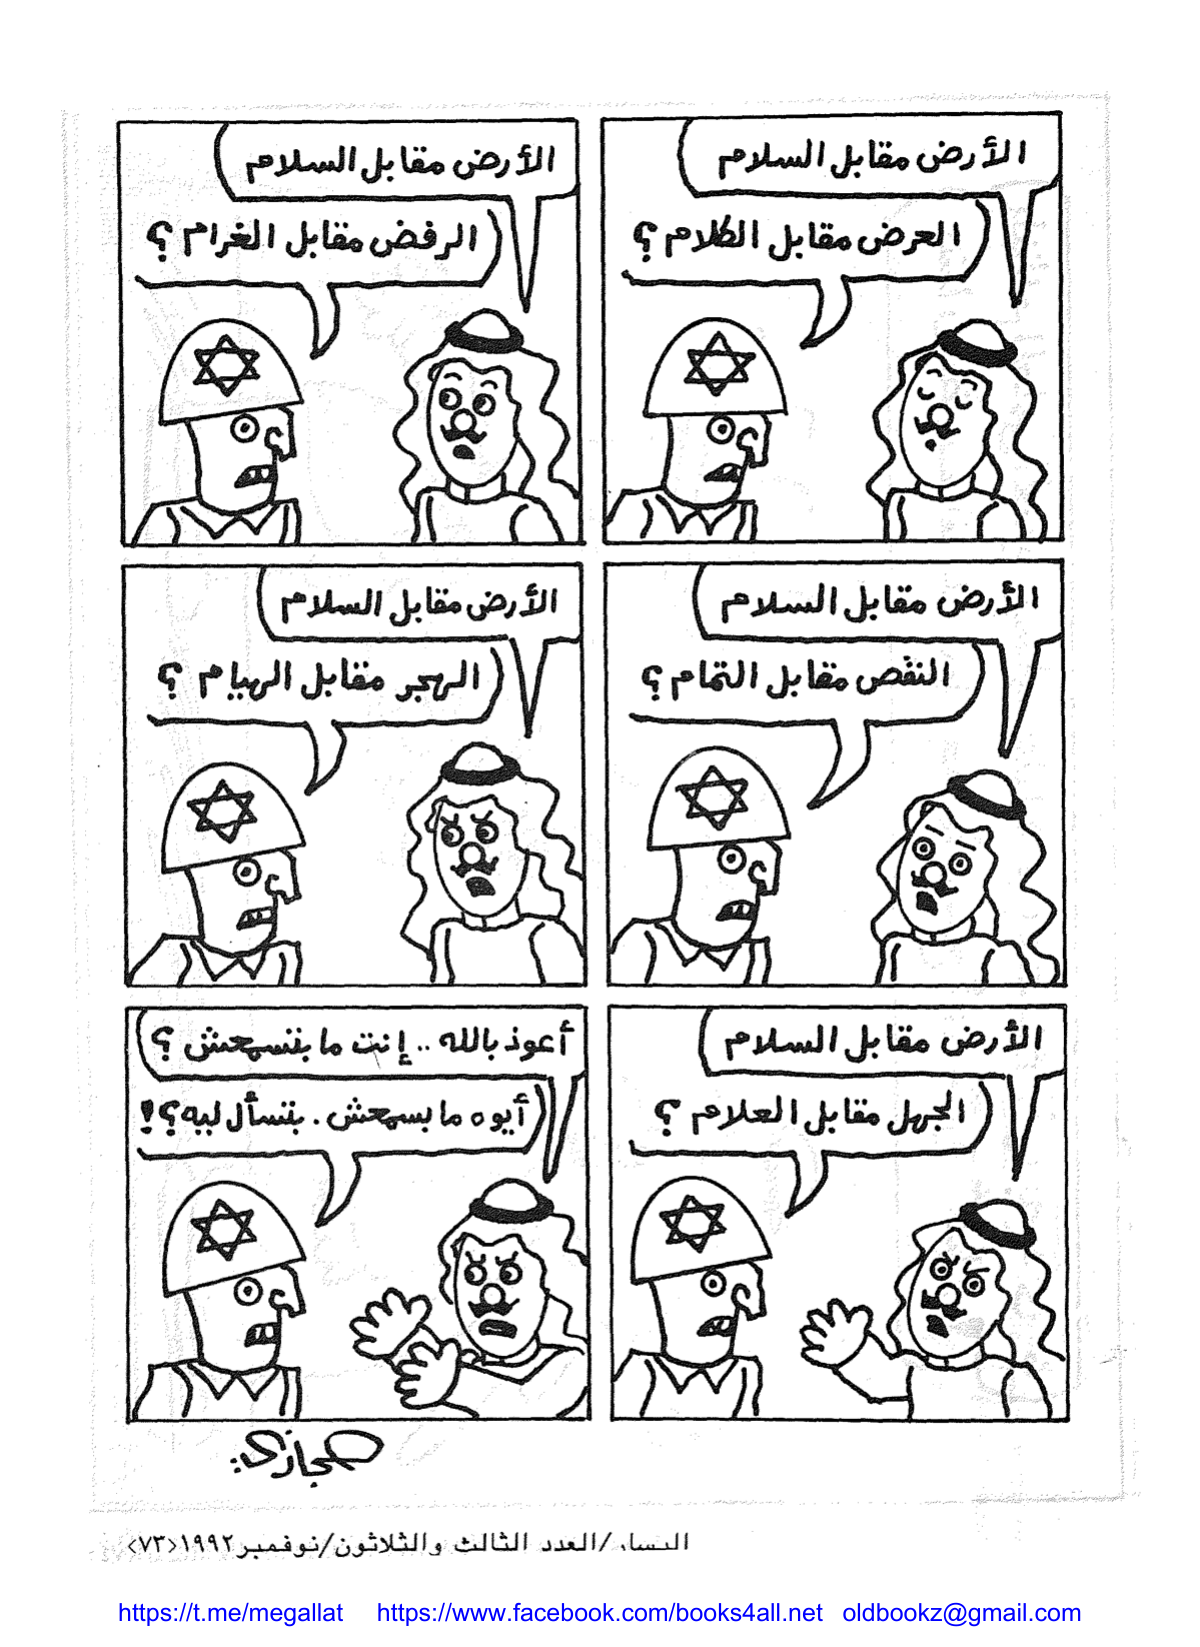 الأرض مقابل السلام
العرض مقابل الكلام ؟
الأرض مقابل السلام
الرفض مقابل الغرام ؟
الأرض مقابل السلام
النقص مقابل التمام ؟
الأرض مقابل السلام
الهجر مقابل الهيام ؟
الأرض مقابل السلام
الجهل مقابل العلام ؟
أعوذ بالله .. إنت ما بتسمعش ؟
أيوه ما بسمعش . بتسأل ليه ؟!
حجازى
اليسار/العدد الثالث والثلاثون/نوفمبر ١٩٩٢<٧٣>
https://t.me/megallat https://www.facebook.com/books4all.net oldbookz@gmail.com